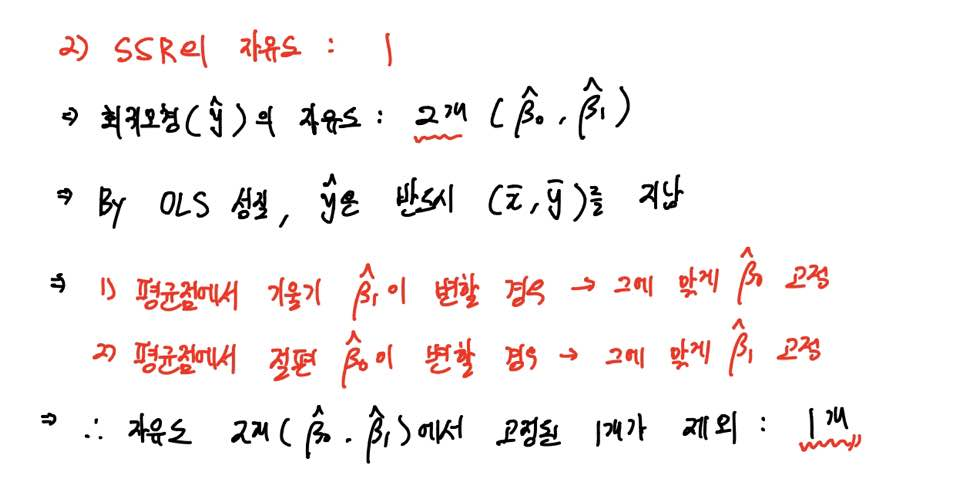 2) SSR의 자유도 : 1
⇒ 회귀모형(ŷ)의 자유도 : 2개 (β̂₀, β̂₁)
⇒ By OLS 성질, ŷ은 반드시 (x̄, ȳ)를 지남
⇒ 1) 평균점에서 기울기 β̂₁이 변할 경우 → 그에 맞게 β̂₀ 고정
2) 평균점에서 절편 β̂₀이 변할 경우 → 그에 맞게 β̂₁ 고정
⇒ ∴ 자유도 2개(β̂₀, β̂₁)에서 고정된 1개가 제외 : 1개